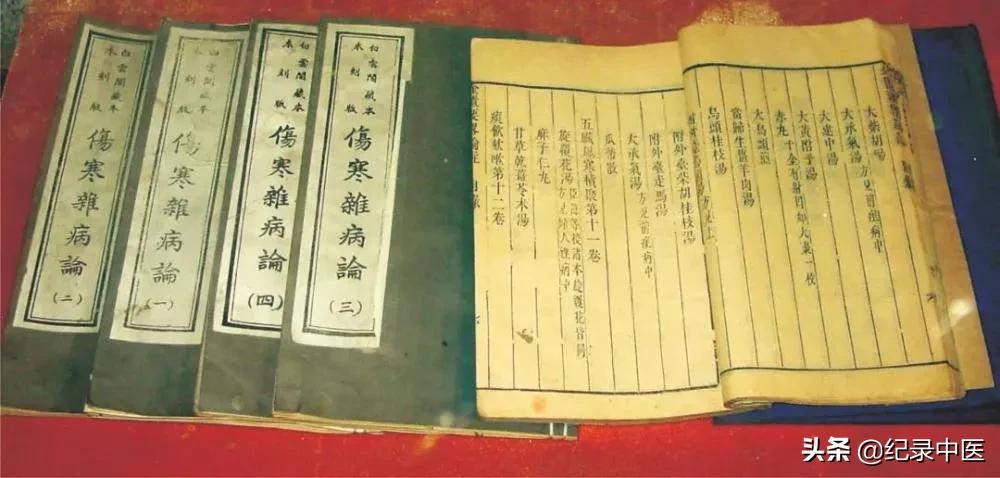 白雲閣藏本
木刻版
傷寒雜病論
(二)
白雲閣藏本
木刻版
傷寒雜病論
(一)
白雲閣藏本
木刻版
傷寒雜病論
(四)
白雲閣藏本
木刻版
傷寒雜病論
(三)
大柴胡湯
大承氣湯 方見前痙病中
大建中湯
大黃附子湯
赤丸
大烏頭煎
當歸生薑羊肉湯
烏頭桂枝湯
附外臺柴胡桂枝湯
附外臺走馬湯
大承氣湯 方見前痙病中
瓜蒂散
五臟風寒積聚第十一卷
旋覆花湯
麻子仁丸
甘草乾薑苓朮湯
痰飲欬嗽第十二卷
头条 @纪录中医